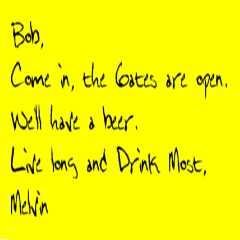 Bob,
Come in, the Gates are open.
We'll have a beer.
Live long and Drink Most,
Melvin